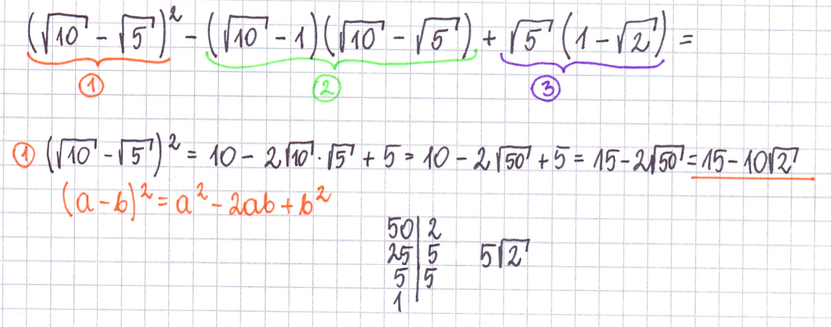 (√10 - √5)² - (√10 - 1)(√10 - √5) + √5 (1 - √2) =
① ② ③
① (√10 - √5)² = 10 - 2√10 · √5 + 5 = 10 - 2√50 + 5 = 15 - 2√50 = 15 - 10√2
(a - b)² = a² - 2ab + b²
50 | 2
25 | 5 5√2
5 | 5
1 |